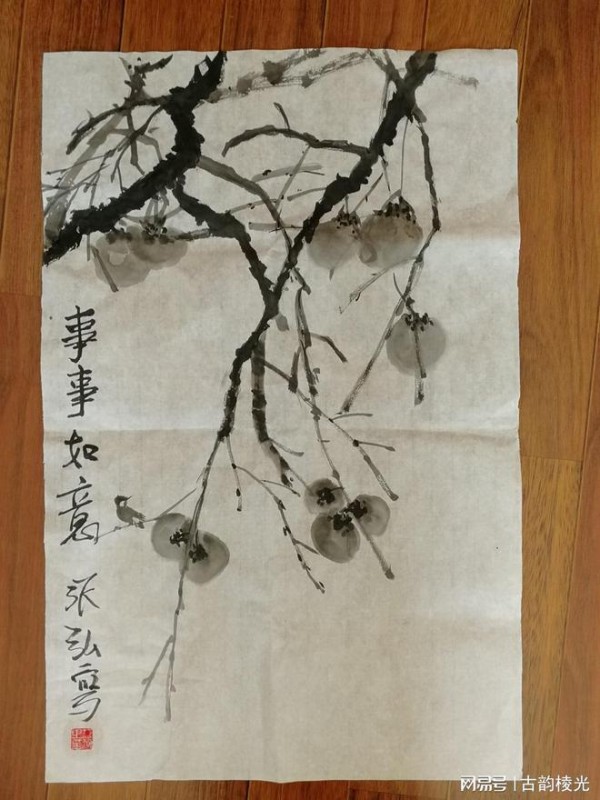 事事如意 张弘写
网易号 | 古韵棱光